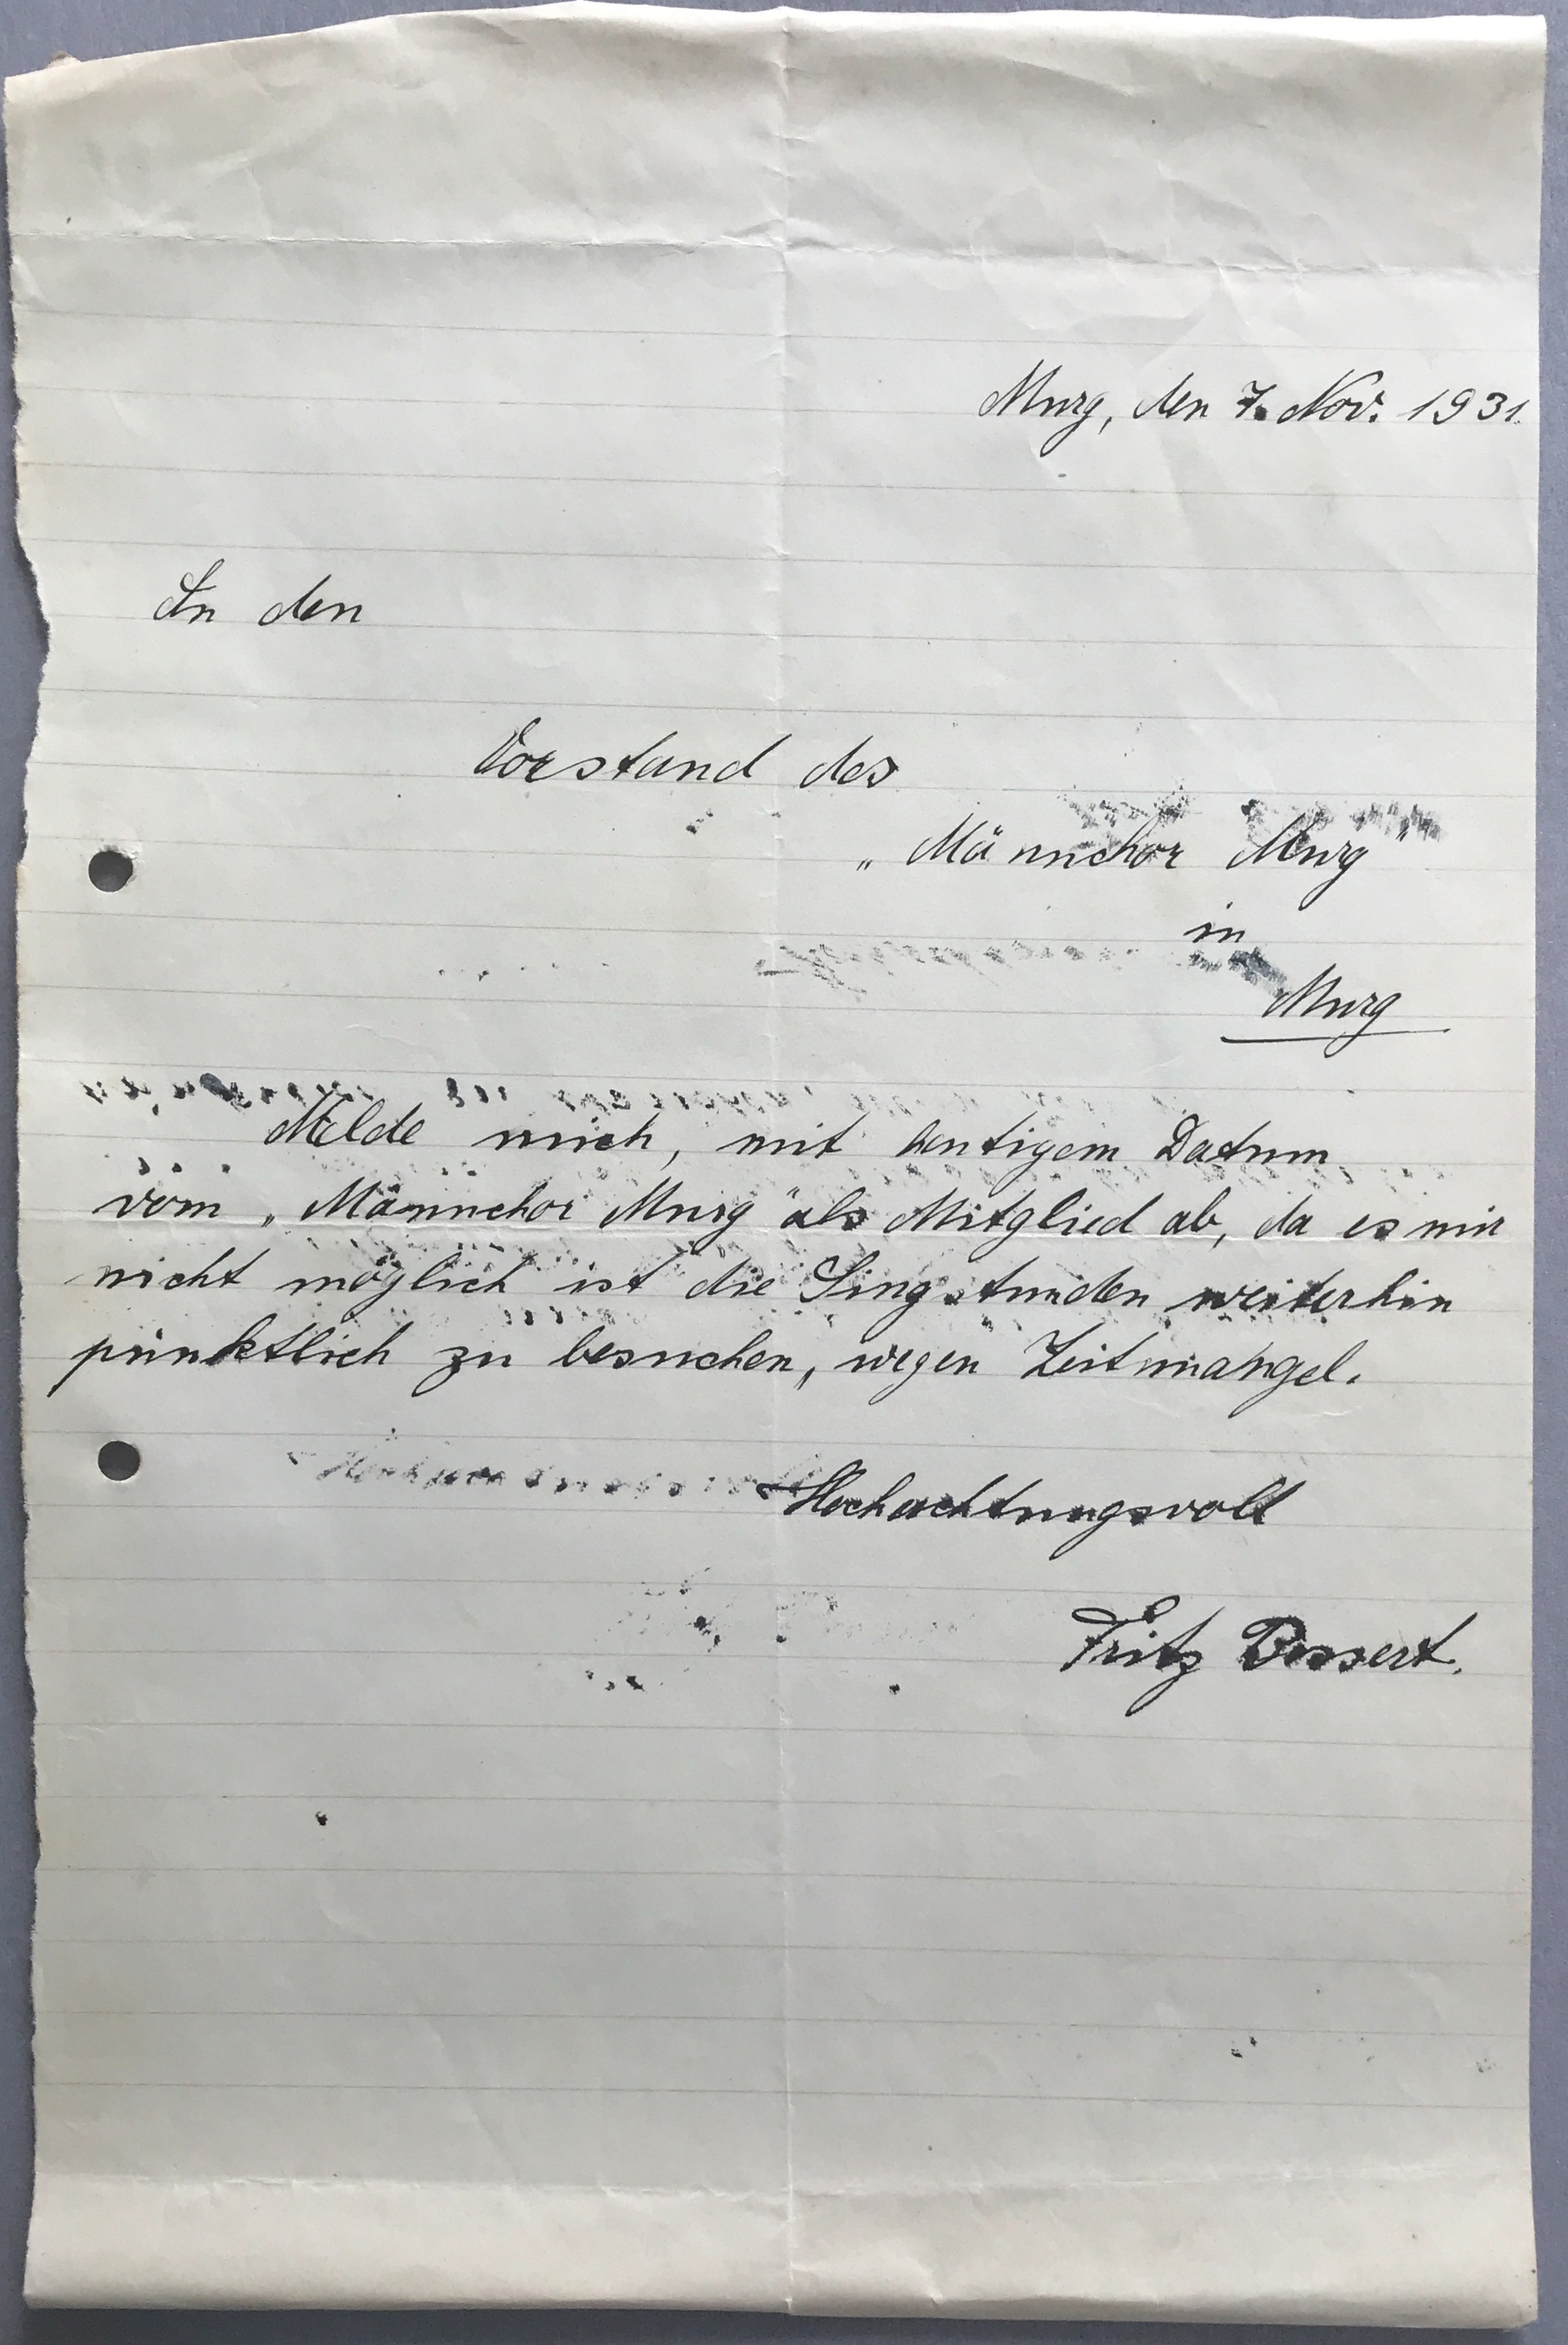 Murg, den 7. Nov. 1931.
An den
Vorstand des
„Männchor Murg"
in
Murg
Melde mich, mit heutigem Datum
vom „Männchor Murg" als Mitglied ab, da es mir
nicht möglich ist die Singstunden weiterhin
pünktlich zu besuchen, wegen Zeitmangel.
Hochachtungsvoll
Fritz Bossert.